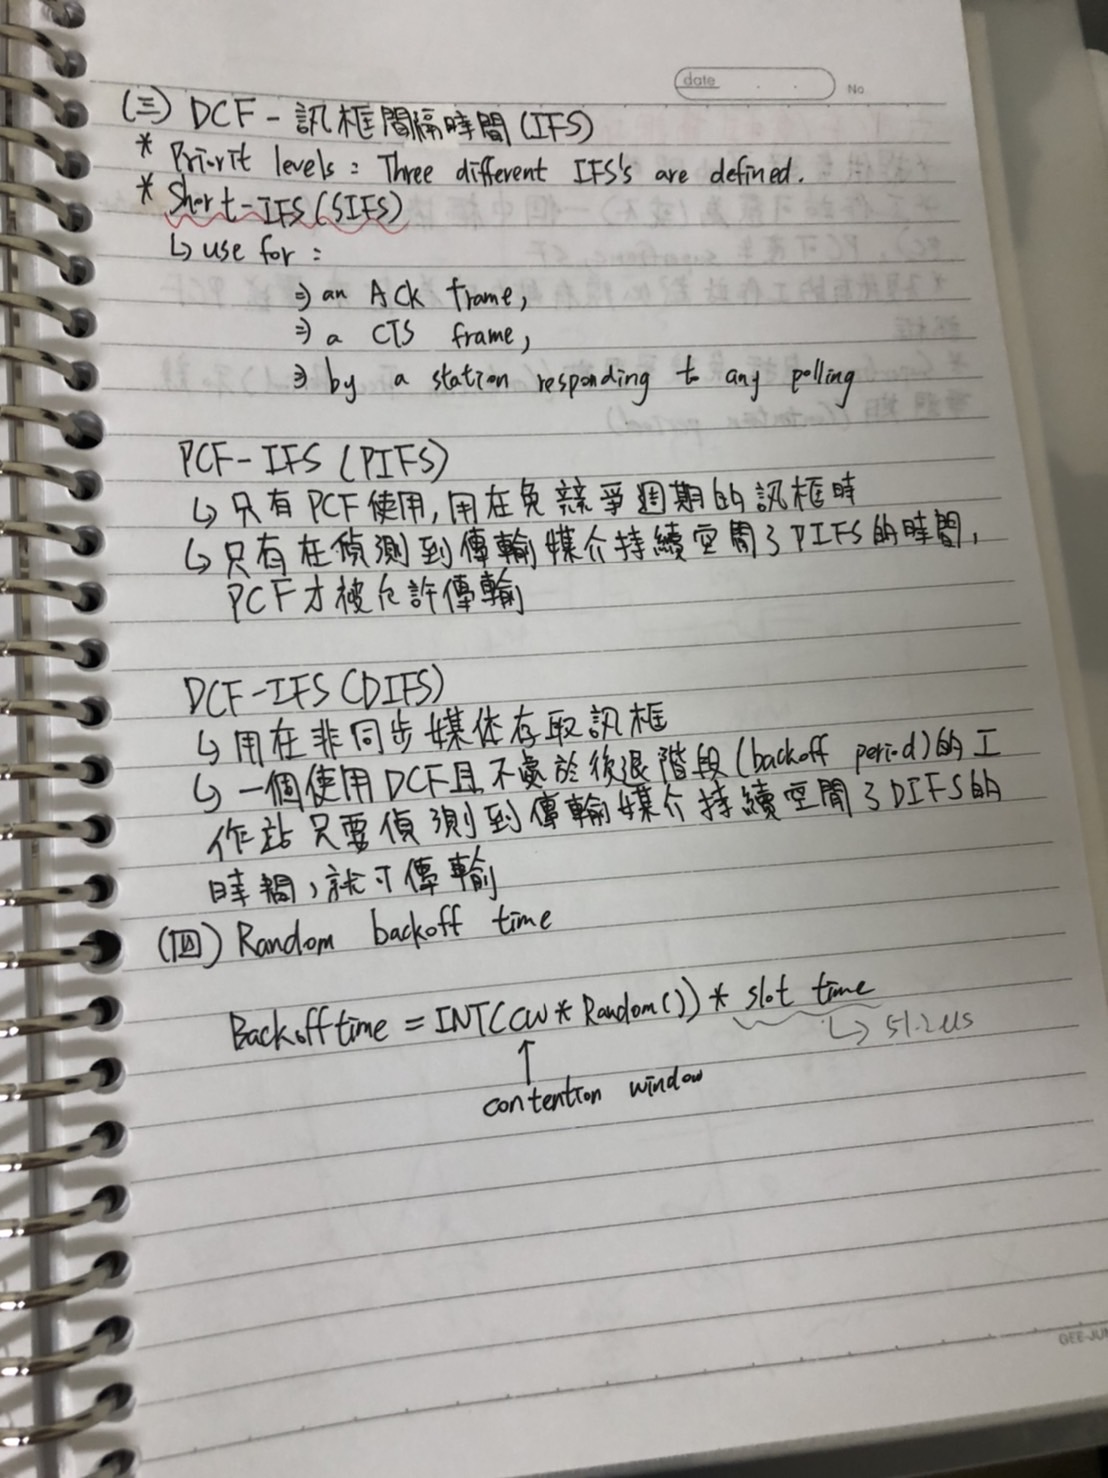 date
No.
(三) DCF - 訊框間隔時間 (IFS)
* Priorit levels : Three different IFS's are defined.
* Short-IFS (SIFS)
↳ use for :
⇒ an ACK frame,
⇒ a CTS frame,
⇒ by a station responding to any polling
PCF-IFS (PIFS)
↳ 只有 PCF 使用, 用在免競爭週期的訊框時
↳ 只有在偵測到傳輸媒介持續空閒了 PIFS 的時間,
PCF 才被允許傳輸
DCF-IFS (DIFS)
↳ 用在非同步媒体存取訊框
↳ 一個使用 DCF 且不處於後退階段 (backoff period) 的工
作站只要偵測到傳輸媒介持續空閒了 DIFS 的
時間, 就可傳輸
(四) Random backoff time
Backoff time = INT(CW * Random()) * slot time
↳ 51.2us
↑
contention window
GEE-JUN